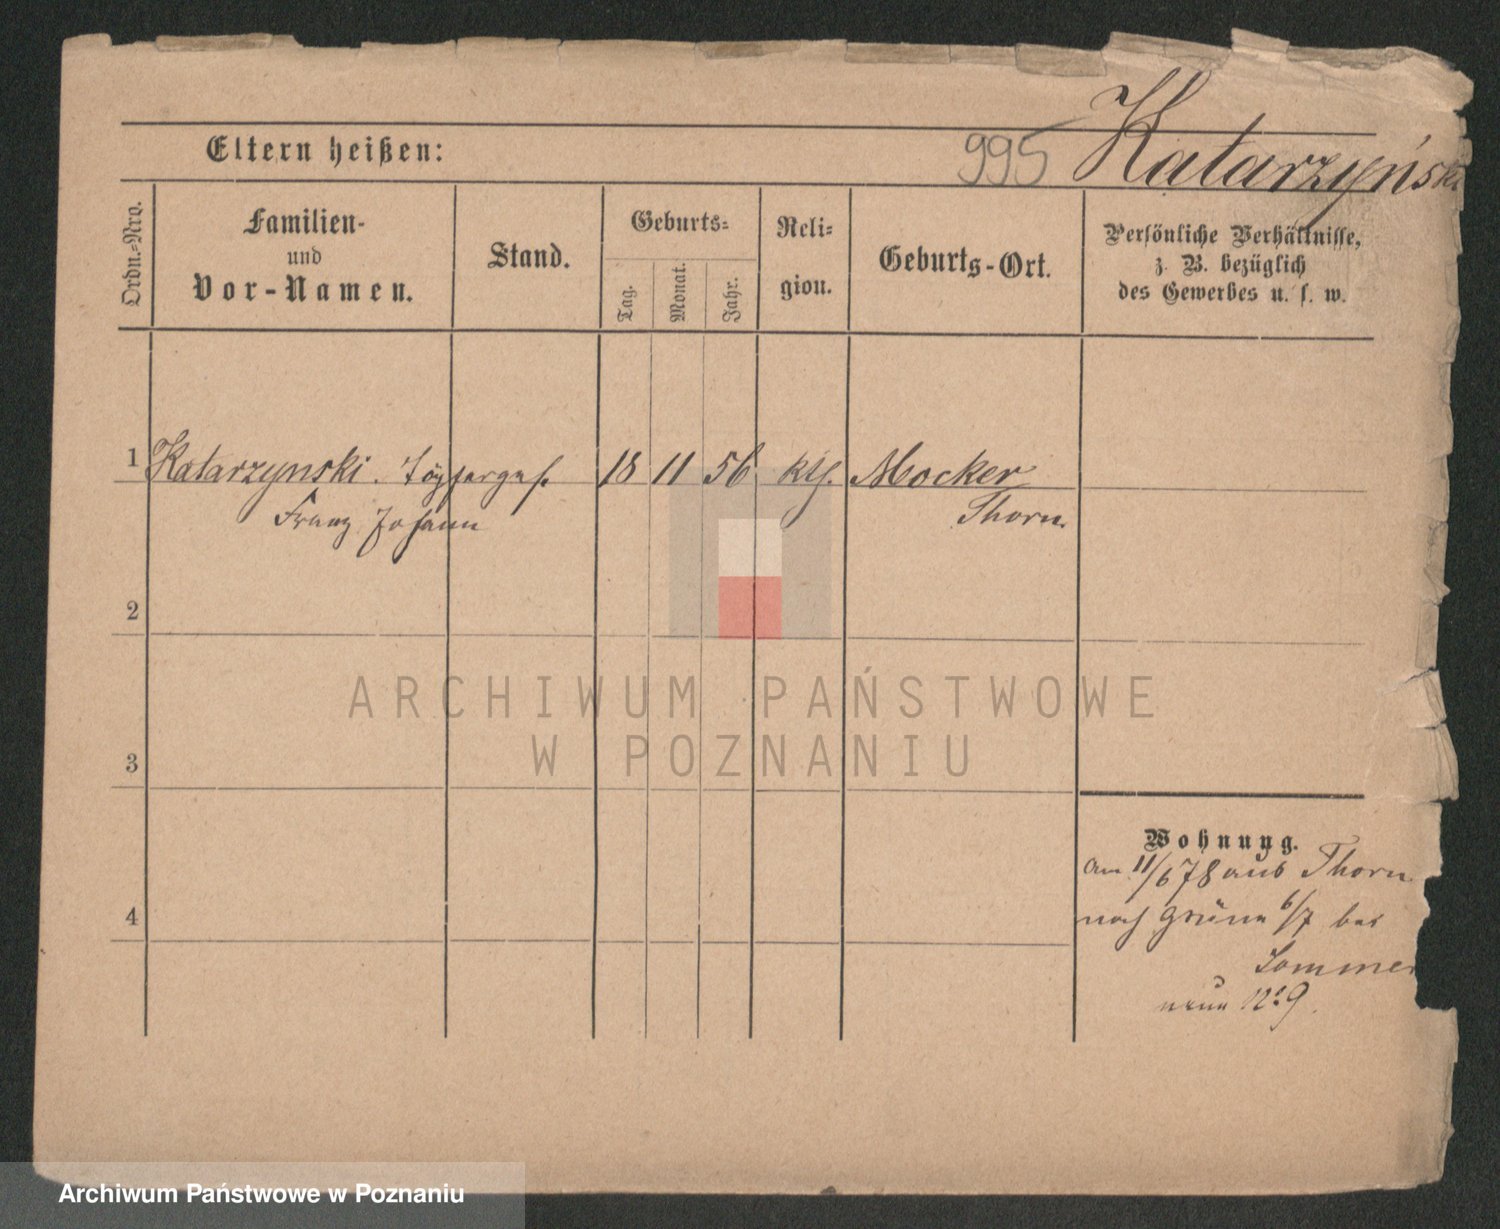 995 Katarzyński
Eltern heißen:
Ordn.-Nro.
Familien-
und
Vor-Namen.
Stand.
Geburts-
Tag.
Monat.
Jahr.
Reli-
gion.
Geburts-Ort.
Persönliche Verhältnisse,
z. B. bezüglich
des Gewerbes u. s. w.
1 Katarzynski. Töpferges. 18 11 56 kth. Mocker
Franz Johann Thorn.
2
3
4
Wohnung.
am 11/6 78 aus Thorn
nach Grüne 6/7 bei
Sommer
No 9.
ARCHIWUM PAŃSTWOWE
W POZNANIU
Archiwum Państwowe w Poznaniu